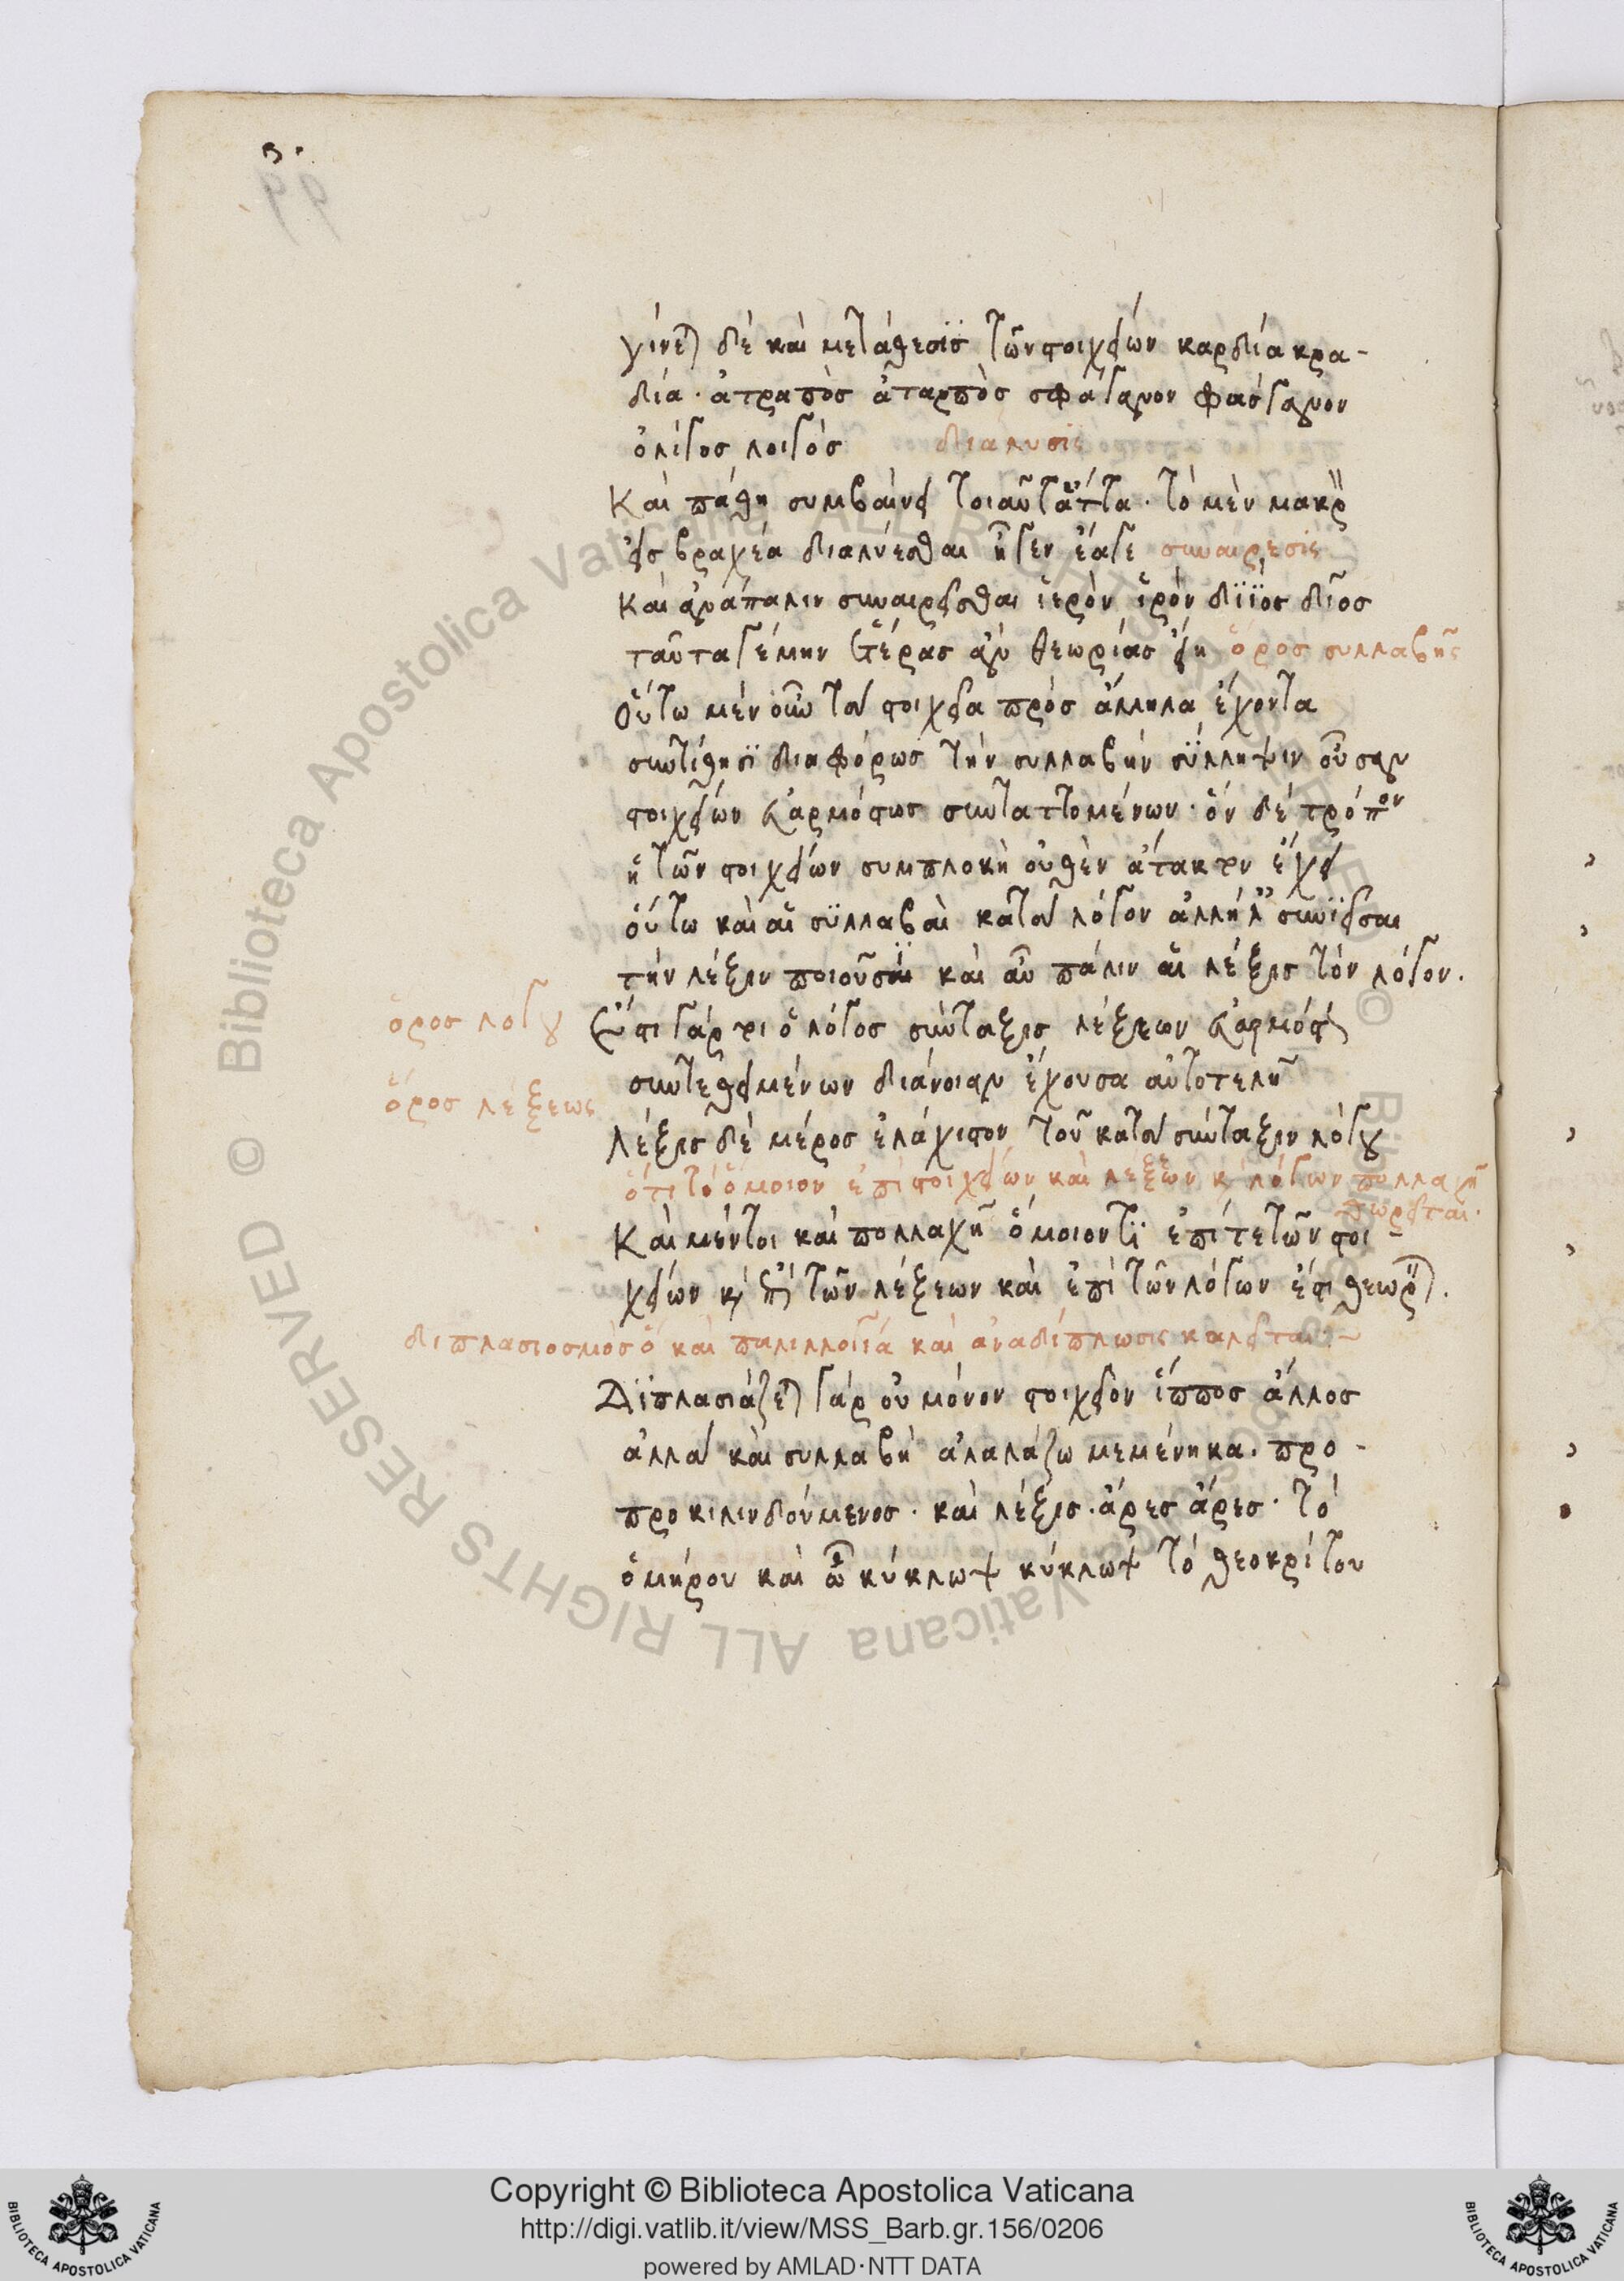 γίνεται δὲ καὶ μετάθεσϊς τῶν στοιχείων καρδία κρα-
δία· ἀτραπὸς ἀταρπὸς σφάγανον φάσγανον
ὀλίγος λοιγός διαλυσις
Καὶ πάθη συμβαίνει τοιαῦτα ἄττα· τὸ μὲν μακρ
εἰς βραχέα διαλύεσθαι ἦγεν ἔαγε συναίρεσις
καὶ ἀνάπαλιν συναιρεῖσθαι ἱερὸν ἱρὸν δίϊος δῖος
ταῦτα γέμην ἑτέρας ἂν θεωρίας εἴη ὅρος συλλαβῆς
Οὕτω μὲν οὖν τὰ στοιχεῖα πρὸς ἄλληλα ἔχοντα
συντίθησϊ διαφόρως τὴν συλλαβὴν σύλληψιν οὖσαν
στοιχείων ἐναρμόστως συνταττομένων· ὃν δὲ τρόπον
ἡ τῶν στοιχείων συμπλοκὴ οὐθὲν ἄτακτον ἔχει
οὕτω καὶ αἱ σϋλλαβαὶ κατὰ λόγον ἀλλήλ συνϊεῖσαι
τὴν λέξιν ποιοῦσαι καὶ αὖ πάλιν αἱ λέξεις τὸν λόγον.
ὅρος λόγου
Ἔστι γάρ τι ὁ λόγος σύνταξις λέξεων ἐναρμόστως
συντεθειμένων διάνοιαν ἔχουσα αὐτοτελῆ
ὅρος λέξεως
Λέξις δὲ μέρος ἐλάχιστον τοῦ κατὰ σύνταξιν λόγου
ὅτι τὸ ὅμοιον ἐπὶ στοιχείων καὶ λέξεων καὶ λόγων πολλαχῆ
θεωρεῖται.
Καὶ μέντοι καὶ πολλαχῆ ὅμοιόν τϊ ἐπί τε τῶν στοι-
χείων καὶ ἐπὶ τῶν λέξεων καὶ ἐπὶ τῶν λόγων ἔστι θεωρ.
διπλασιοσμὸς ὃ καὶ παλιλλογία καὶ ἀναδίπλωσις καλεῖται:~
Δϊπλασιάζεται γὰρ οὐ μόνον στοιχεῖον ἵππος ἄλλος
ἀλλὰ καὶ συλλαβὴ ἀλαλάζω μεμένηκα. προ-
προκιλινδούμενος· καὶ λέξις· ἄρες ἄρες· τὸ
ὁμήρου καὶ ὦ κύκλωψ κύκλωψ τὸ θεοκρίτου
Copyright © Biblioteca Apostolica Vaticana
http://digi.vatlib.it/view/MSS_Barb.gr.156/0206
powered by AMLAD·NTT DATA
BIBLIOTECA APOSTOLICA VATICANA
BIBLIOTECA APOSTOLICA VATICANA
© Biblioteca Apostolica Vaticana ALL RIGHTS RESERVED
© Biblioteca Apostolica Vaticana ALL RIGHTS RESERVED